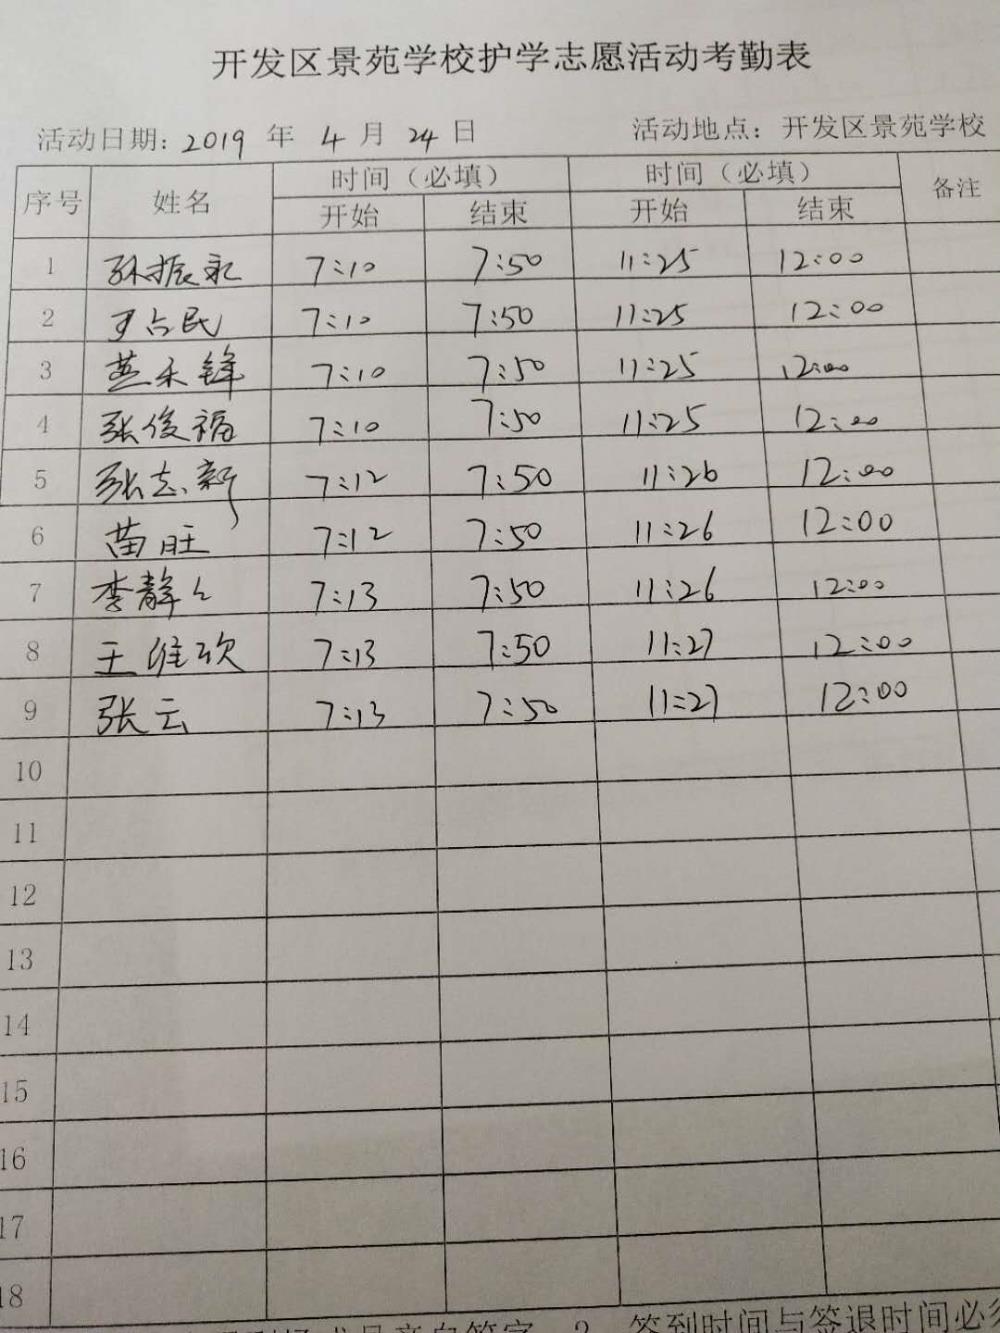 开发区景苑学校护学志愿活动考勤表
活动日期: 2019 年 4 月 24 日 活动地点: 开发区景苑学校
序号 姓名 时间（必填） 时间（必填） 备注
开始 结束 开始 结束
1 孙振永 7:10 7:50 11:25 12:00
2 于占民 7:10 7:50 11:25 12:00
3 7:10 7:50 11:25 12:00
4 张俊福 7:10 7:50 11:25 12:00
5 张志新 7:12 7:50 11:26 12:00
6 苗旺 7:12 7:50 11:26 12:00
7 李静 7:13 7:50 11:26 12:00
8 王维 7:13 7:50 11:27 12:00
9 张云 7:13 7:50 11:27 12:00
10
11
12
13
14
15
16
17
18
签到时间与签退时间必须